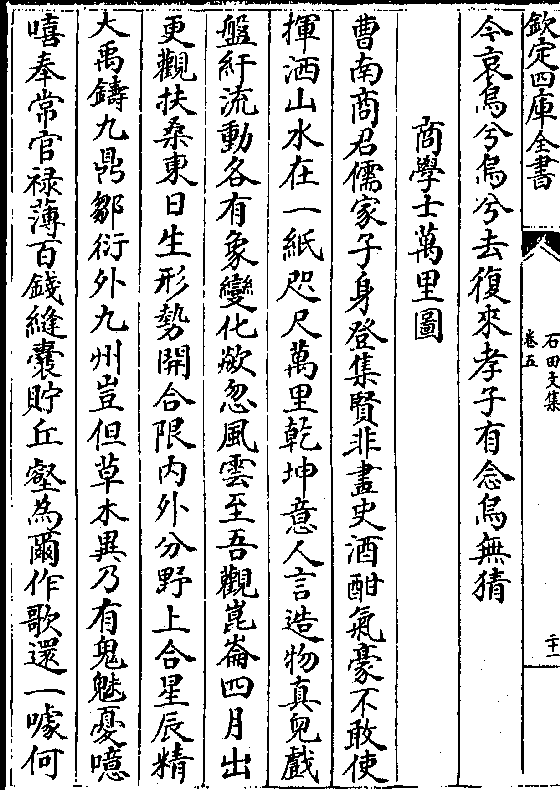 欽定四庫全書
石田文集
卷五
二十一
今哀烏兮烏兮去復來孝子有念烏無猜
商學士萬里圖
曹南商君儒家子身登集賢非畫史酒酣氣豪不敢使
揮洒山水在一紙咫尺萬里乾坤意人言造物真兒戲
盤紆流動各有象變化歘忽風雲至吾觀崑崙四月出
更觀扶桑東日生形勢開合限内外分野上合星辰精
大禹鑄九鼎鄒衍外九州豈但草木異乃有鬼魅憂噫
嘻奉常官禄薄百錢縫囊貯丘壑為爾作歌還一噱何